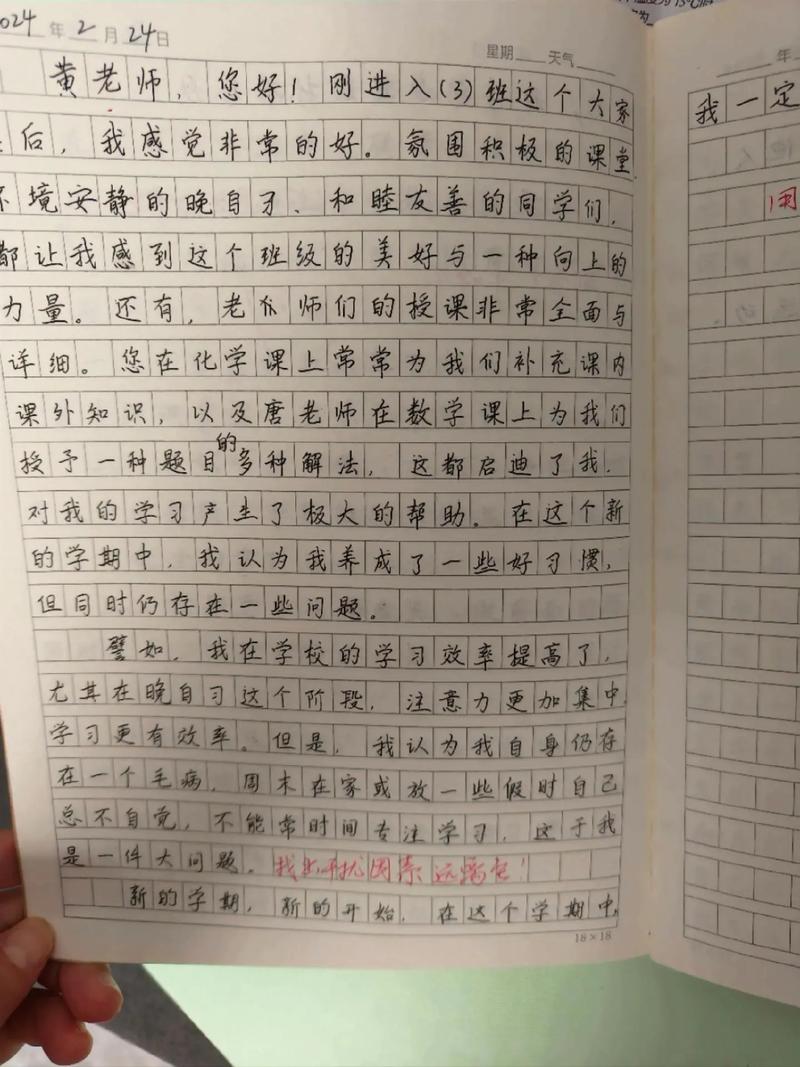 2024年2月24日 星期 天气
黄老师，您好！刚进入(3)班这个大家
后，我感觉非常的好。氛围积极的课堂
环境安静的晚自习、和睦友善的同学们，
都让我感到这个班级的美好与一种向上的
力量。还有，老师们的授课非常全面与
详细。您在化学课上常常为我们补充课内
课外知识，以及唐老师在数学课上为我们
授予一种题目的多种解法，这都启迪了我，
对我的学习产生了极大的帮助。在这个新
的学期中，我认为我养成了一些好习惯，
但同时仍存在一些问题。
譬如，我在学校的学习效率提高了，
尤其在晚自习这个阶段，注意力更加集中，
学习更有效率。但是，我认为我自身仍存
在一个毛病，周末在家或放一些假时自己
总不自觉，不能常时间专注学习，这于我
是一件大问题。找出干扰因素远离它！
新的学期，新的开始，在这个学期中，
18×18
年
我一定
用
15℃
为